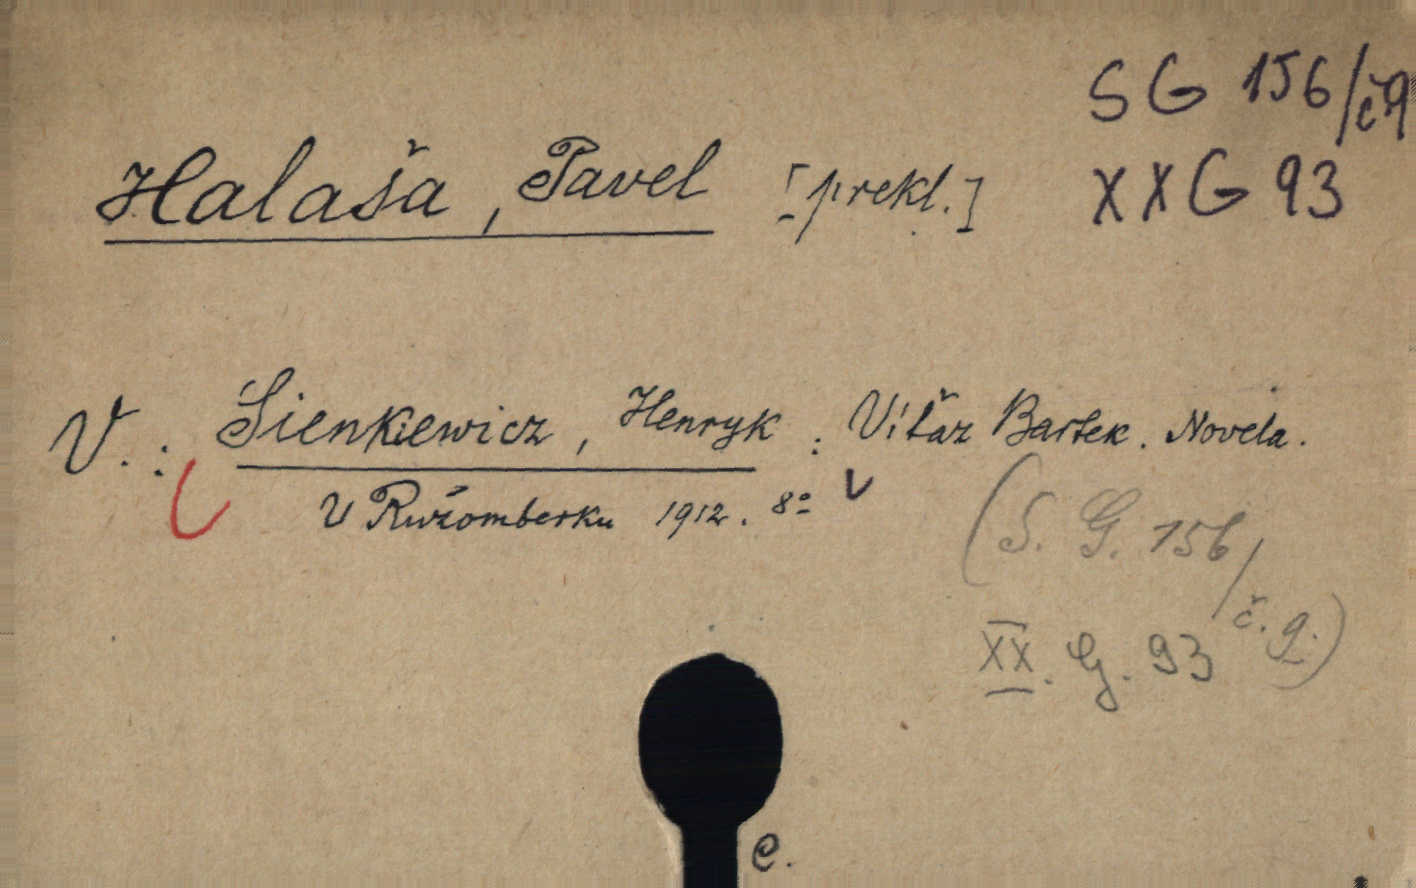 SG 156/č9
Halaša, Pavel [prekl.]
XXG 93
V.: Sienkiewicz, Henryk: Víťaz Bartek. Novela.
V Ružomberku 1912. 8°
(S. G. 156/č. 9.)
XX. G. 93
e.